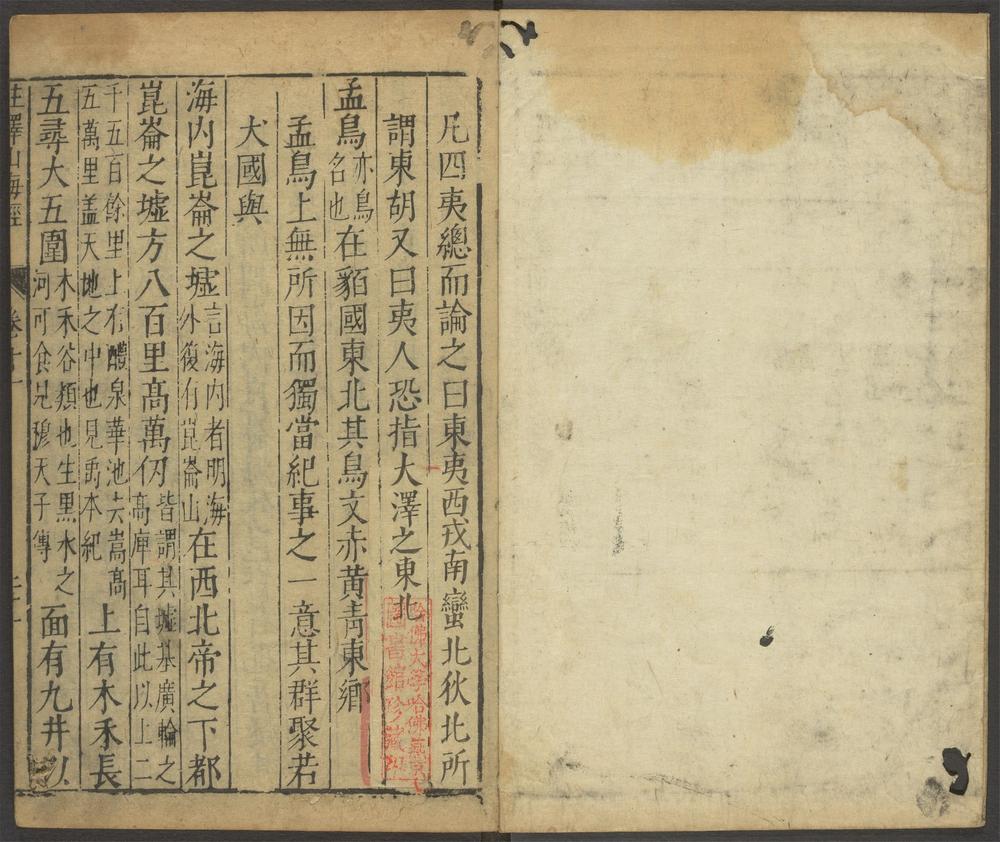 凡四夷總而論之曰東夷西戎南蠻北狄北所
謂東胡又曰夷人恐指大澤之東北
孟鳥亦鳥名也在貊國東北其鳥文赤黃青東鄉
孟鳥上無所因而獨當紀事之一意其群聚若
犬國與
海内崑崙之墟言海内者明海外復有崑崙山在西北帝之下都
崑崙之墟方八百里高萬仞皆謂其墟基廣輪之高庳耳自此以上二
千五百餘里上有醴泉華池去嵩高五萬里盖天地之中也見禹本紀上有木禾長
五尋大五圍木禾谷類也生黒水之河可食見穆天子傳面有九井以
山海經
卷十一
哈佛大學哈佛燕京
圖書館珍藏印